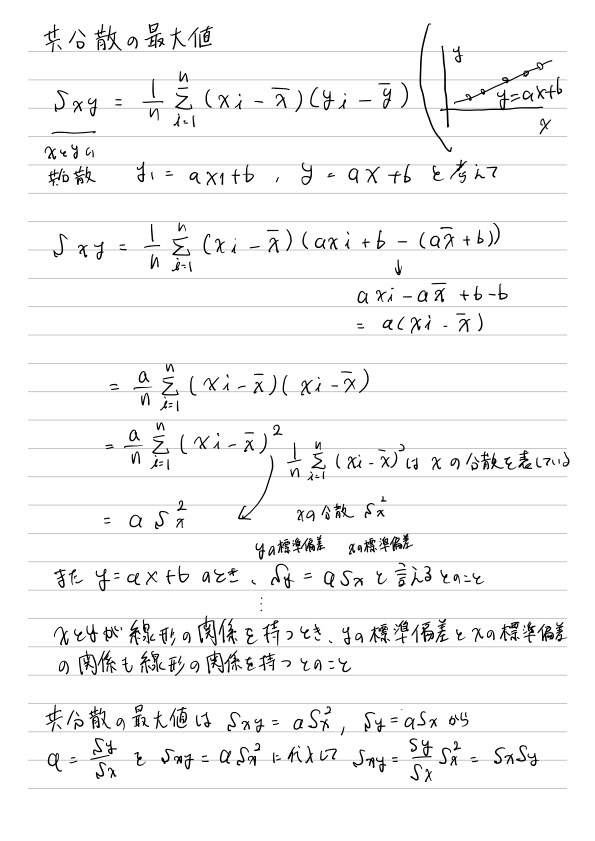 共分散の最大値
Sxy = 1/n Σ[i=1→n] (xi − x̄)(yi − ȳ)
y
y=ax+b
x
xとyの
共分散
y1 = ax1+b , y = ax+b と考えて
Sxy = 1/n Σ[i=1→n] (xi − x̄)(axi + b − (ax̄+b))
↓
axi − ax̄ + b−b
= a(xi − x̄)
= a/n Σ[i=1→n] (xi − x̄)(xi − x̄)
= a/n Σ[i=1→n] (xi − x̄)²
1/n Σ[i=1→n] (xi − x̄)²は xの分散を表している
= a Sx²
xの分散 Sx²
yの標準偏差 xの標準偏差
また y=ax+b のとき、Sy = aSx と言えるとのこと
⋮
xとyが線形の関係を持つとき、yの標準偏差とxの標準偏差
の関係も線形の関係を持つとのこと
共分散の最大値は Sxy = aSx², Sy=aSx から
a = Sy/Sx を Sxy = aSx² に代入して Sxy = Sy/Sx Sx² = SxSy